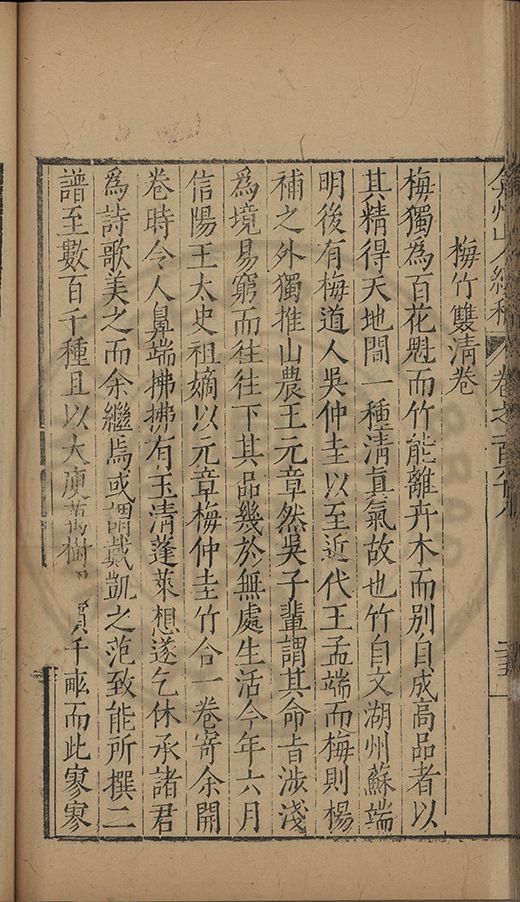 弇州山人續稿 卷之一百
梅竹雙清卷
梅獨為百花魁而竹能離卉木而別自成高品者以
其精得天地間一種清眞氣故也竹自文湖州蘇端
明後有梅道人吳仲圭以至近代王孟端而梅則楊
補之外獨推山農王元章然吳子輩謂其命旨涉淺
為境易窮而往往下其品幾於無處生活今年六月
信陽王太史祖嫡以元章梅仲圭竹合一卷寄余開
卷時令人鼻端拂拂有玉清蓬萊想遂乞休承諸君
為詩歌美之而余繼焉或謂戴凱之范致能所撰二
譜至數百千種且以大庾萬樹千畝而此寥寥